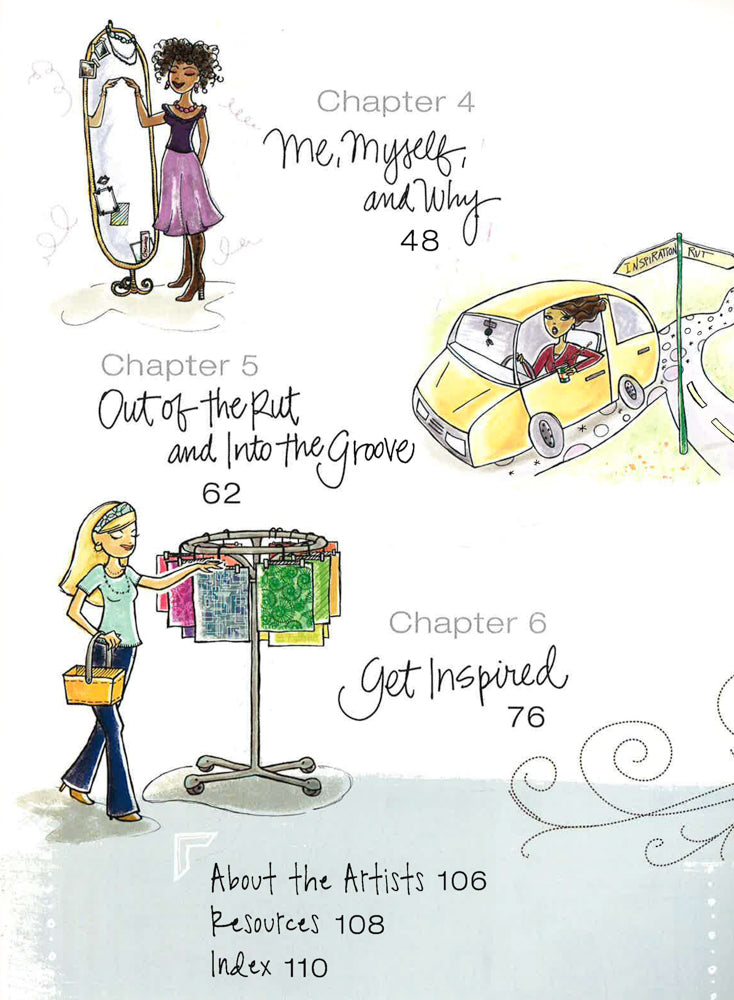 Chapter 4
Me, Myself,
and Why
48
INSPIRATION
RUT
Chapter 5
Out of the Rut
and Into the Groove
62
Chapter 6
Get Inspired
76
About the Artists 106
Resources 108
Index 110